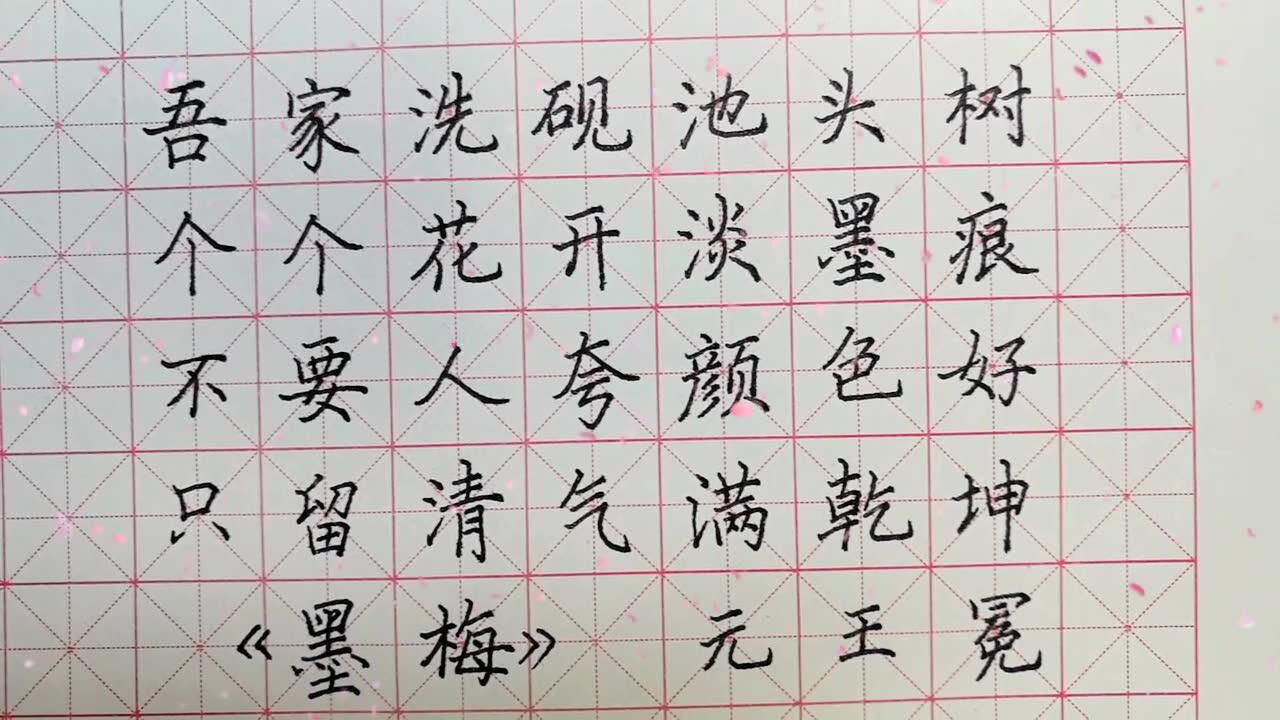 吾家洗砚池头树
个个花开淡墨痕
不要人夸颜色好
只留清气满乾坤
《墨梅》 元 王冕